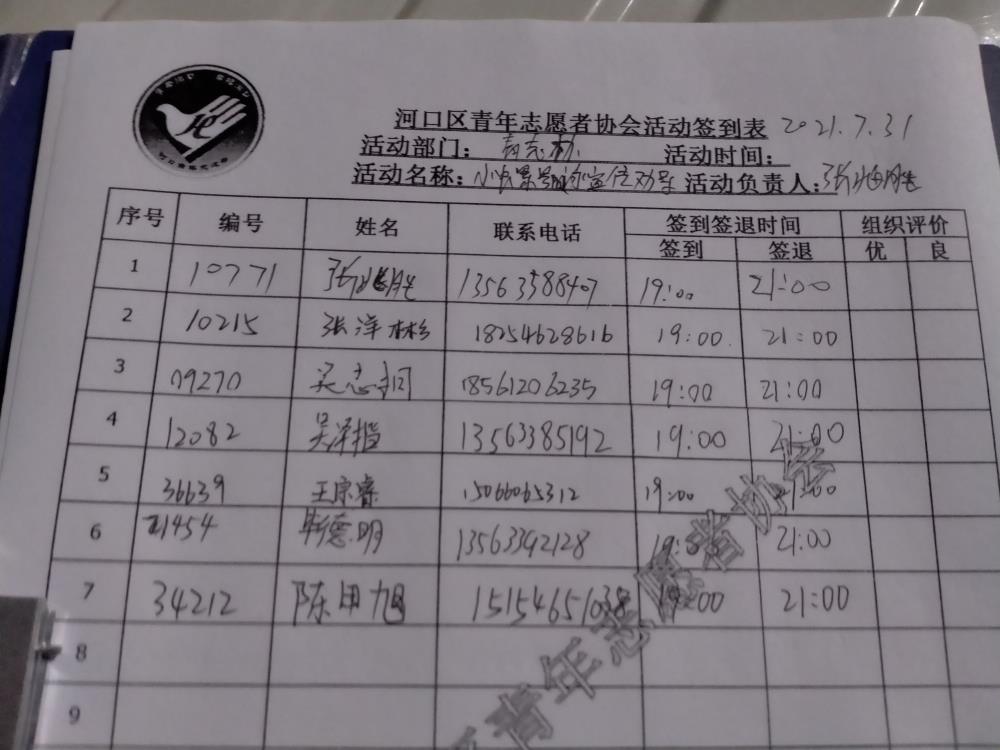 河口区青年志愿者协会活动签到表 2021.7.31
活动部门： 活动时间：
活动名称： 活动负责人：张兆胜
序号 编号 姓名 联系电话 签到签退时间 组织评价
签到 签退 优 良
1 10771 张兆胜 13563388407 19:00 21:00
2 10215 张洋彬 18254628616 19:00 21:00
3 09270 吴志 18561206235 19:00 21:00
4 12082 吴泽楷 13563385192 19:00 21:00
5 36639 王宗睿 15066065312 19:00 21:00
6 21454 靳德明 13563342128 19:00 21:00
7 34212 陈田旭 15154651038 19:00 21:00
8
9
青年志愿者协会